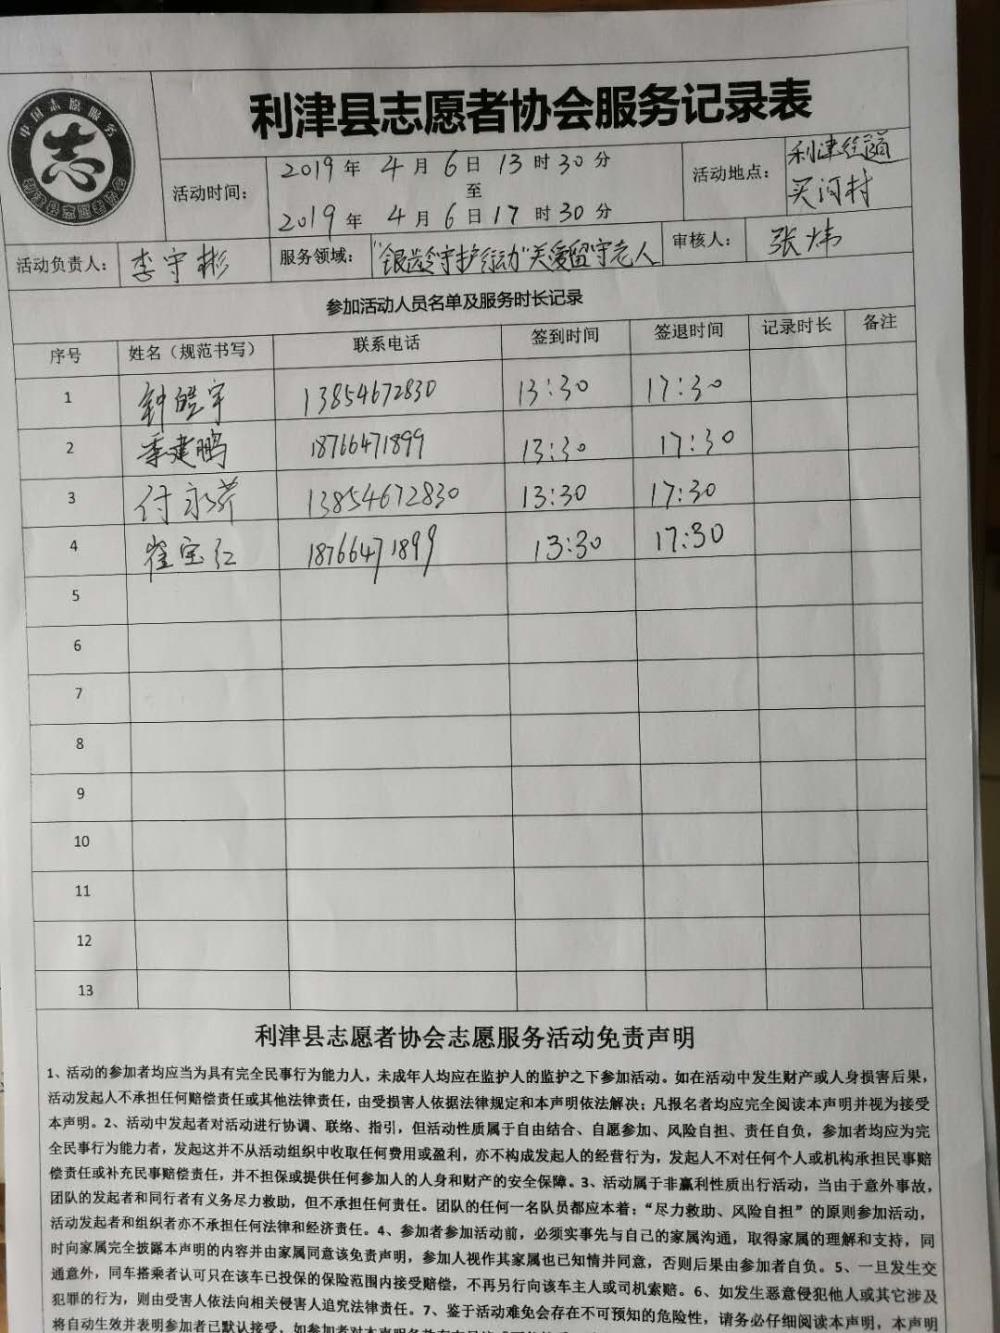 中国志愿服务
志
利津县志愿者协会服务记录表
活动时间：
2019年 4月 6日 13时30分
至
2019年 4月 6日17时30分
活动地点：
利津街道
买河村
活动负责人：
李守彬
服务领域：
"银龄守护行动"关爱留守老人
审核人：
张炜
参加活动人员名单及服务时长记录
序号 姓名（规范书写） 联系电话 签到时间 签退时间 记录时长 备注
1 钟皓宇 13854672830 13:30 17:30
2 季建鹏 18766471899 13:30 17:30
3 付永芹 13854672830 13:30 17:30
4 崔宝红 18766471899 13:30 17:30
5
6
7
8
9
10
11
12
13
利津县志愿者协会志愿服务活动免责声明
1、活动的参加者均应当为具有完全民事行为能力人，未成年人均应在监护人的监护之下参加活动。如在活动中发生财产或人身损害后果，
活动发起人不承担任何赔偿责任或其他法律责任，由受损害人依据法律规定和本声明依法解决；凡报名者均应完全阅读本声明并视为接受
本声明。2、活动中发起者对活动进行协调、联络、指引，但活动性质属于自由结合、自愿参加、风险自担、责任自负，参加者均应为完
全民事行为能力者，发起这并不从活动组织中收取任何费用或盈利，亦不构成发起人的经营行为，发起人不对任何个人或机构承担民事赔
偿责任或补充民事赔偿责任，并不担保或提供任何参加人的人身和财产的安全保障。3、活动属于非赢利性质出行活动，当由于意外事故，
团队的发起者和同行者有义务尽力救助，但不承担任何责任。团队的任何一名队员都应本着：“尽力救助、风险自担”的原则参加活动，
活动发起者和组织者亦不承担任何法律和经济责任。4、参加者参加活动前，必须实事先与自己的家属沟通，取得家属的理解和支持，同
时向家属完全披露本声明的内容并由家属同意该免责声明，参加人视作其家属也已知情并同意，否则后果由参加者自负。5、一旦发生交
通意外，同车搭乘者认可只在该车已投保的保险范围内接受赔偿，不再另行向该车主人或司机索赔。6、如发生恶意侵犯他人或其它涉及
犯罪的行为，则由受害人依法向相关侵害人追究法律责任。7、鉴于活动难免会存在不可预知的危险性，请务必仔细阅读本声明，本声明
将自动生效并表明参加者已默认接受，如参加者对本声明